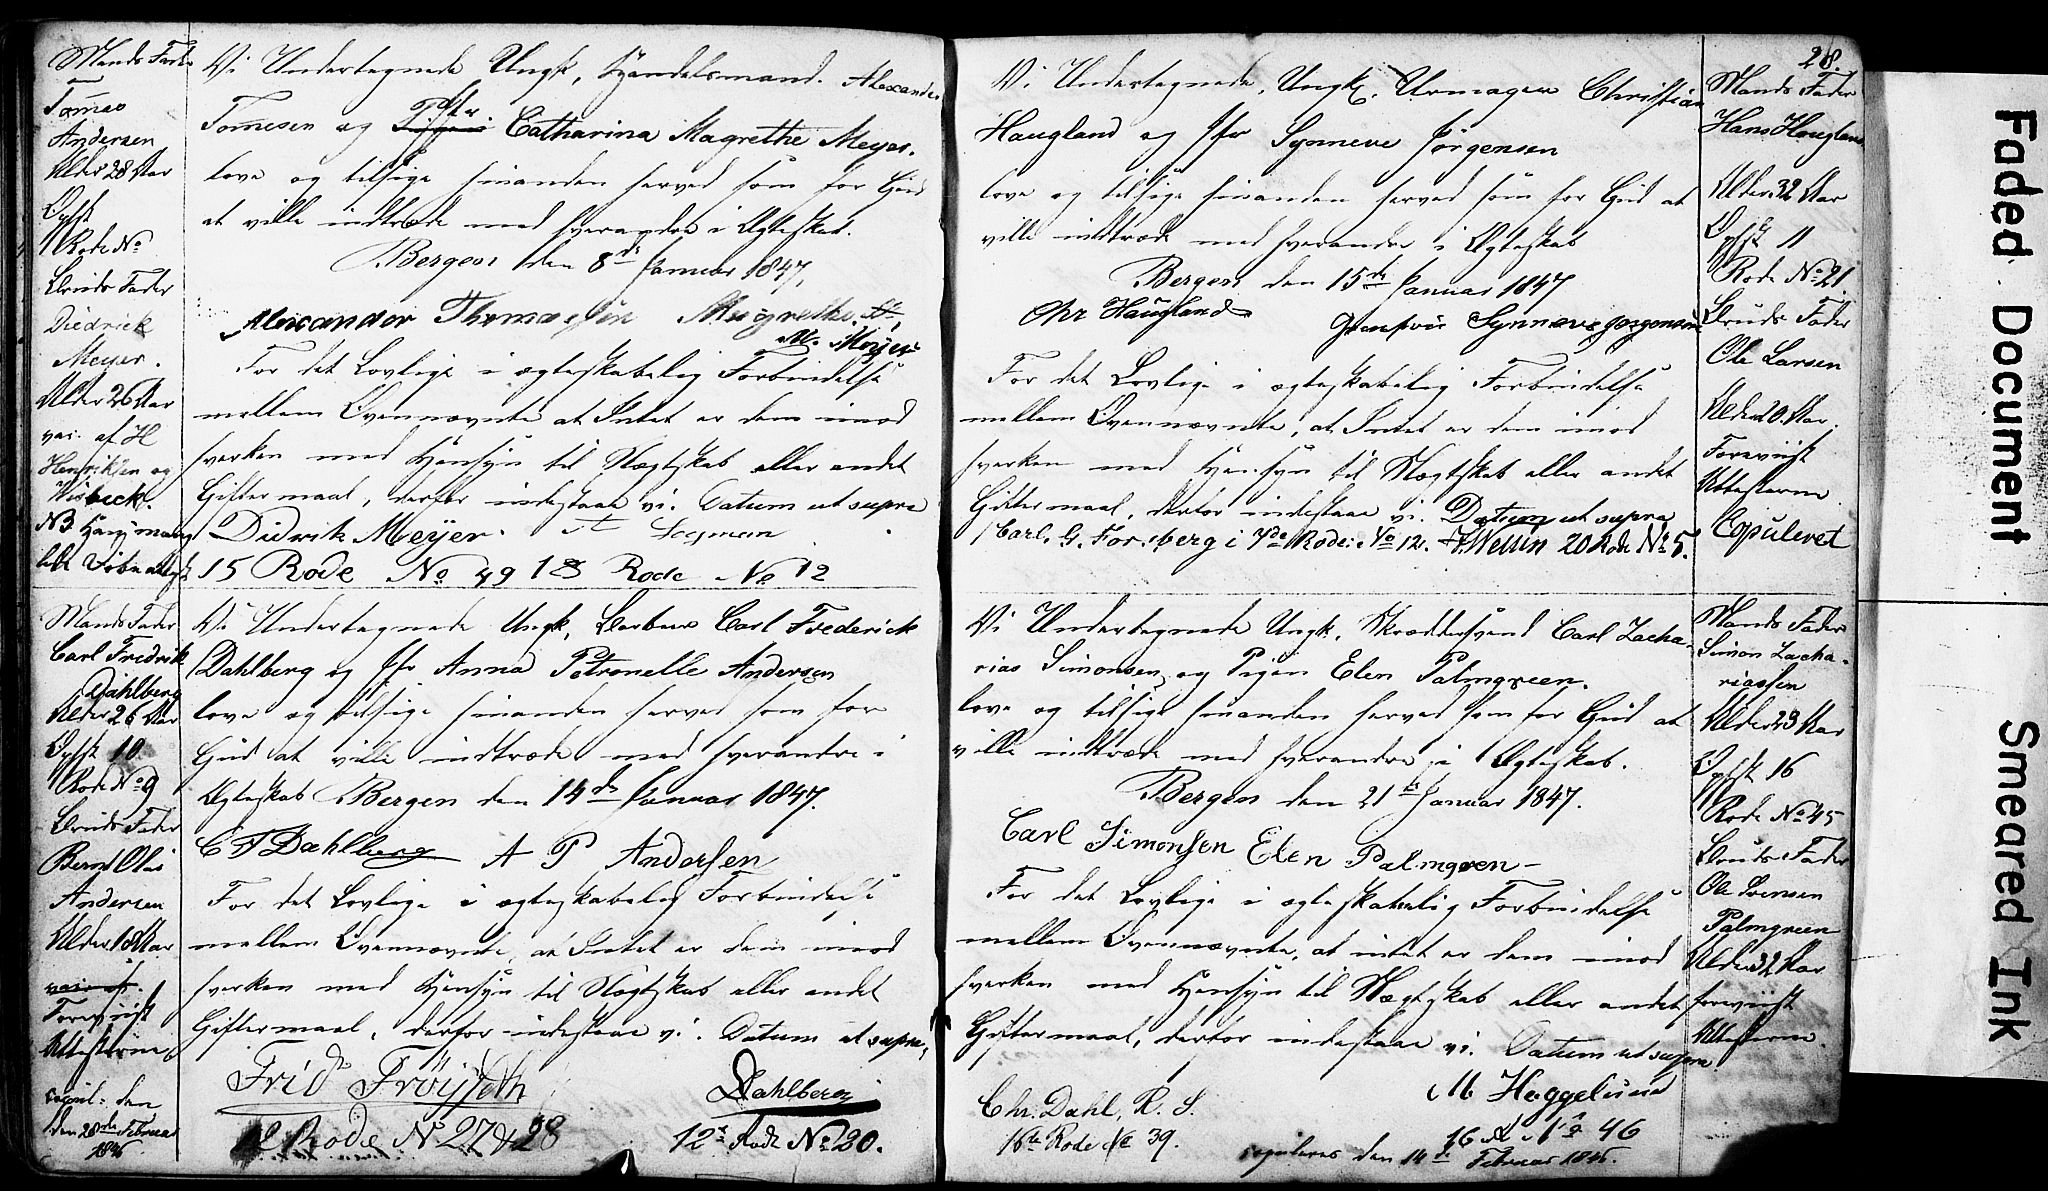 Mands Fader
Tomes
Andersen
Alder 28 Aar
Opfst
Rode No
Bruds Fader
Diedrick
Meyer.
Alder 26 Aar
vac. af H
Henriksen og
Wisbeck.
Vi Undertegnede Ungk, Handelsmand. Alexander
Tomesen og Catharina Magrethe Meyer.
love og tilsige hinanden herved som for Gud
at ville indtræde med hverandre i Ægteskab.
Bergen den 8de Januar 1847,
Alexander Thomassen Magrethe
M. Meyer
For det Lovlige i ægteskabelig Forbindelse
mellem Ovennævnte at Intet er dem imod
hverken med Hensyn til Slægtskab eller andet
Giftermaal, derfor indestaae vi. Datum ut supra
Didrik Meyer.
15 Rode No 49 18 Rode No 12
Mands Fader
Carl Fredrik
Dahlberg
Alder 26 Aar
Opfst 10.
Rode No 9
Bruds Fader
Bernt Olai
Andersen
Alder 18 Aar
Foreviist
Attesterne
copul: den
den 28de Februar
Vi Undertegnede Ungk, Barbeer Carl Frederick
Dahlberg og Jfr Anna Petronelle Andersen
love og tilsige hinanden herved som for
Gud at ville indtræde med hverandre i
Ægteskab Bergen den 14de Januar 1847.
C F Dahlberg A P Andersen
For det Lovlige i ægteskabelig Forbindelse
mellem Ovennævnte, at Intet er dem imod
hverken med Hensyn til Slægtskab eller andet
Giftermaal, derfor indestaae vi. Datum ut supra,
Frid Tröyseth Dahlberg
Rode No 27 & 28 12te Rode No 30.
28.
Vi Undertegnede, Ungk. Urmager Christian
Haugland og Jfr Synneve Jørgensen
love og tilsige hinanden herved som for Gud at
ville indtræde med hverandre i Ægteskab
Bergen den 15de Januar 1847
Chr Haugland Synneve Jørgensen
For det Lovlige i ægteskabelig Forbindelse
mellem Ovennævnte, at Intet er dem imod
hverken med Hensyn til Slægtskab eller andet
Giftermaal, derfor indestaae vi. Datum ut supra
Carl. G. Forsberg i 7de Rode: No 12. Wellin 20 Rode No 5.
Mands Fader
Hans Haugland
Alder 32 Aar
Opfst 11
Rode No 21.
Bruds Fader
Ole Larsen
Alder 20 Aar.
Foreviist
Attesterne
Copuleret
Vi Undertegnede Ungk. Skræddersvend Carl Zacha-
rias Simonsen, og Pigen Elen Palmgreen.
love og tilsige hinanden herved som for Gud at
ville indtræde med hverandre i Ægteskab.
Bergen den 21de Januar 1847.
Carl Simonsen Elen Palmgren
For det Lovlige i ægteskabelig Forbindelse
mellem Ovennævnte, at intet er dem imod
hverken med Hensyn til Slægtskab eller andet
Giftermaal, derfor indestaae vi. Datum ut supra
M Heggelund
Chr. Dahl, R. S.
16de Rode No 39. 16 No 46
copuleres den 14de Februar
Mands Fader
Simon Zacha-
riassen
Alder 23 Aar
Opfst 16
Rode No 45
Bruds Fader
Ole Svensen
Palmgreen
Alder 32 Aar
foreviist
Attesterne.
Faded Document
Smeared Ink